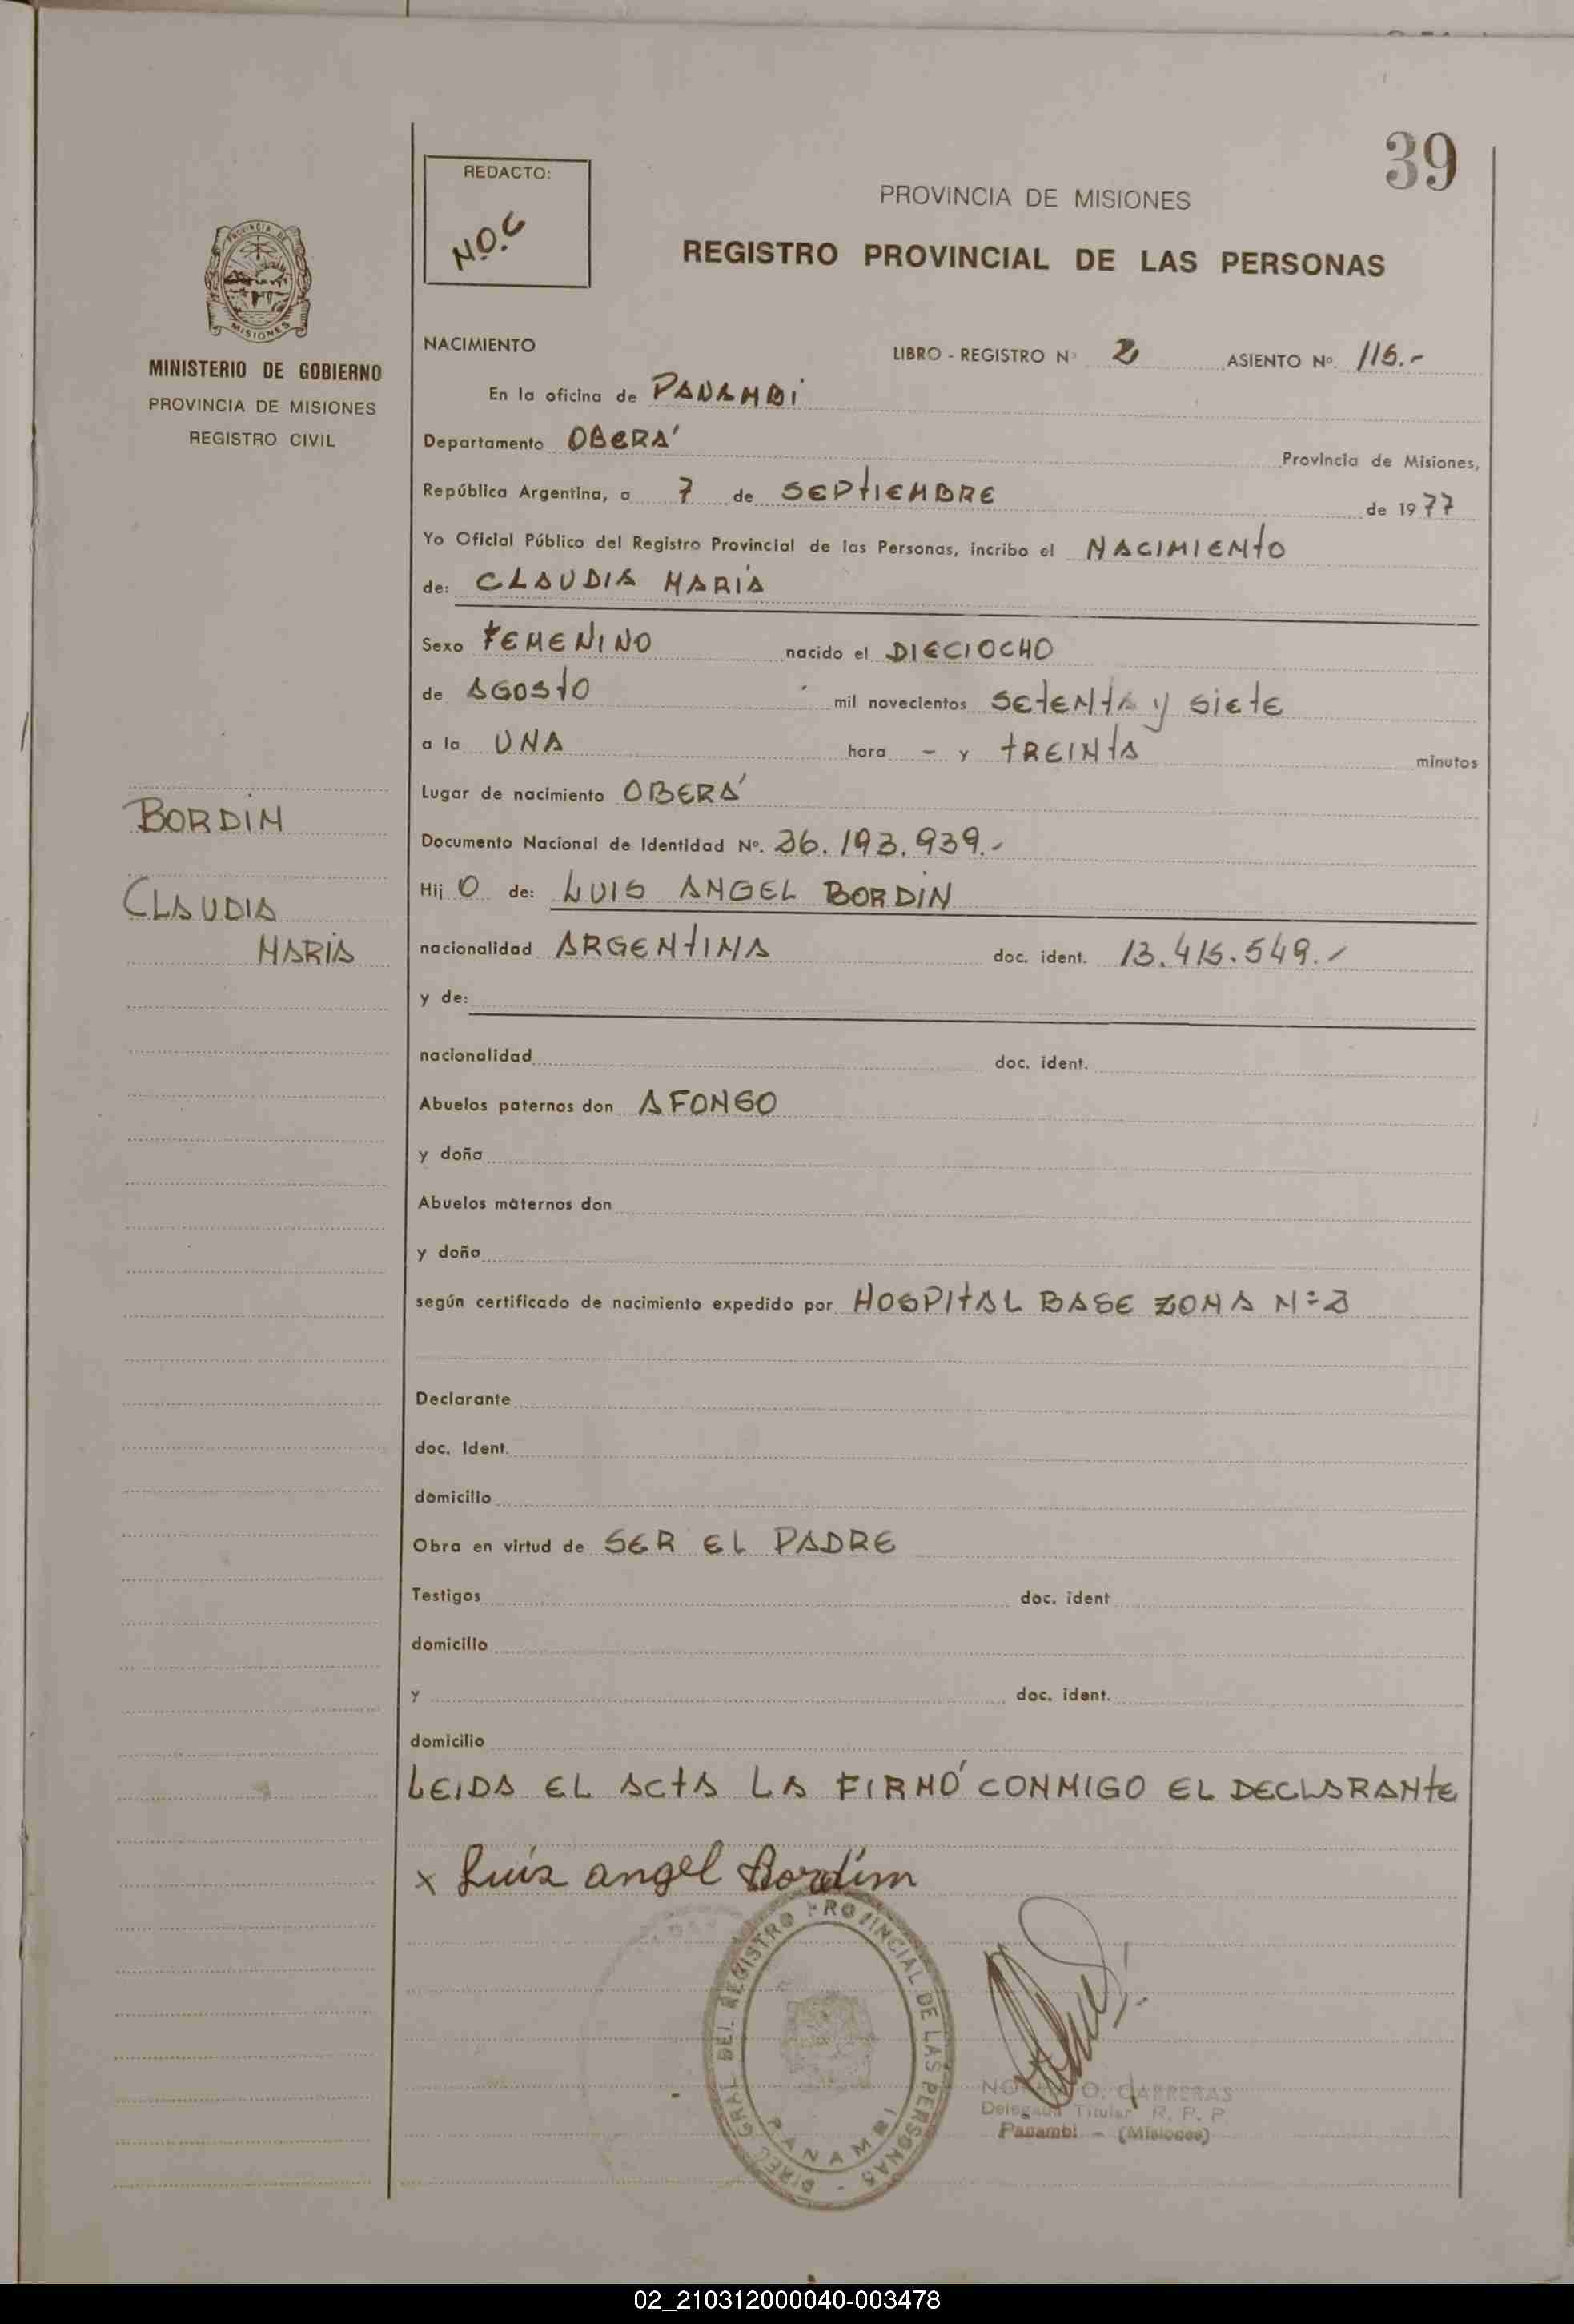 39
REDACTO:
N.O.C
PROVINCIA DE MISIONES
REGISTRO PROVINCIAL DE LAS PERSONAS
PROVINCIA DE
MISIONES
MINISTERIO DE GOBIERNO
PROVINCIA DE MISIONES
REGISTRO CIVIL
NACIMIENTO LIBRO - REGISTRO Nº 2 ASIENTO Nº. 115.-
En la oficina de PANAMBI
Departamento OBERA' Provincia de Misiones,
República Argentina, a 7 de SEPTIEMBRE de 1977
Yo Oficial Público del Registro Provincial de las Personas, incribo el NACIMIENTO
de: CLAUDIA MARIA
Sexo FEMENINO nacido el DIECIOCHO
de AGOSTO mil novecientos SETENTA y SIETE
a la UNA hora - y TREINTA minutos
Lugar de nacimiento OBERA'
BORDIN
Documento Nacional de Identidad Nº. 26.193.939.-
CLAUDIA
MARIA
Hij O de: LUIS ANGEL BORDIN
nacionalidad ARGENTINA doc. ident. 13.415.549.-
y de:
nacionalidad doc. ident.
Abuelos paternos don AFONSO
y doña
Abuelos maternos don
y doña
según certificado de nacimiento expedido por HOSPITAL BASE ZONA N=2
Declarante
doc. Ident.
domicilio
Obra en virtud de SER EL PADRE
Testigos doc. ident
domicilio
y doc. ident.
domicilio
LEIDA EL ACTA LA FIRMÓ CONMIGO EL DECLARANTE
x Luis angel Bordim
DIREC. GRAL. DEL REGISTRO PROVINCIAL DE LAS PERSONAS -
PANAMBI
O. CARRERAS
Delegada Titular R. P. P.
Panambi - (Misiones)
02_210312000040-003478